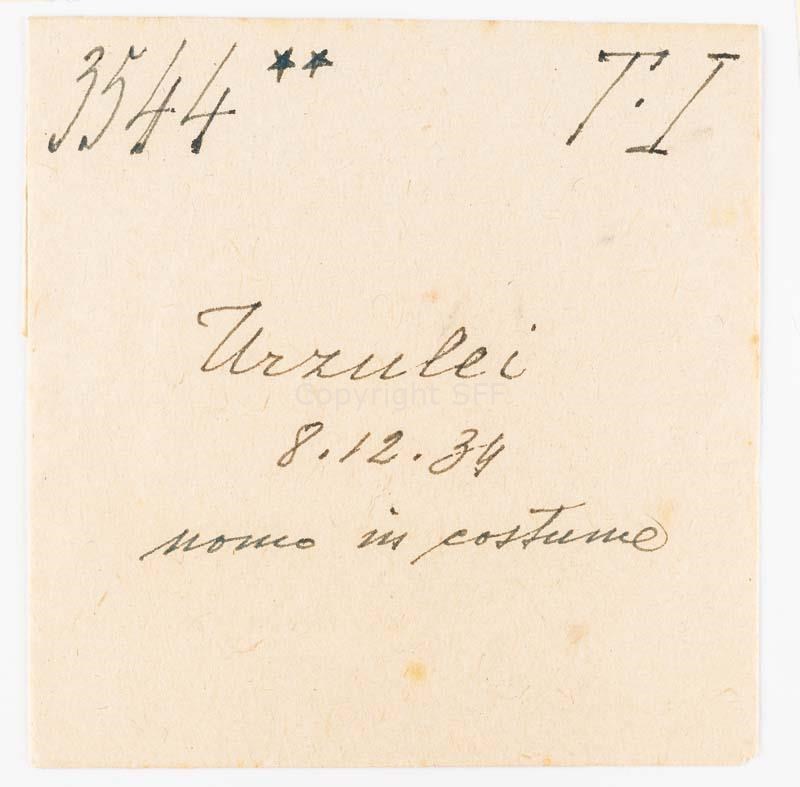 3544 ** T.I
Urzulei
Copyright SFF
8.12.34
uomo in costume